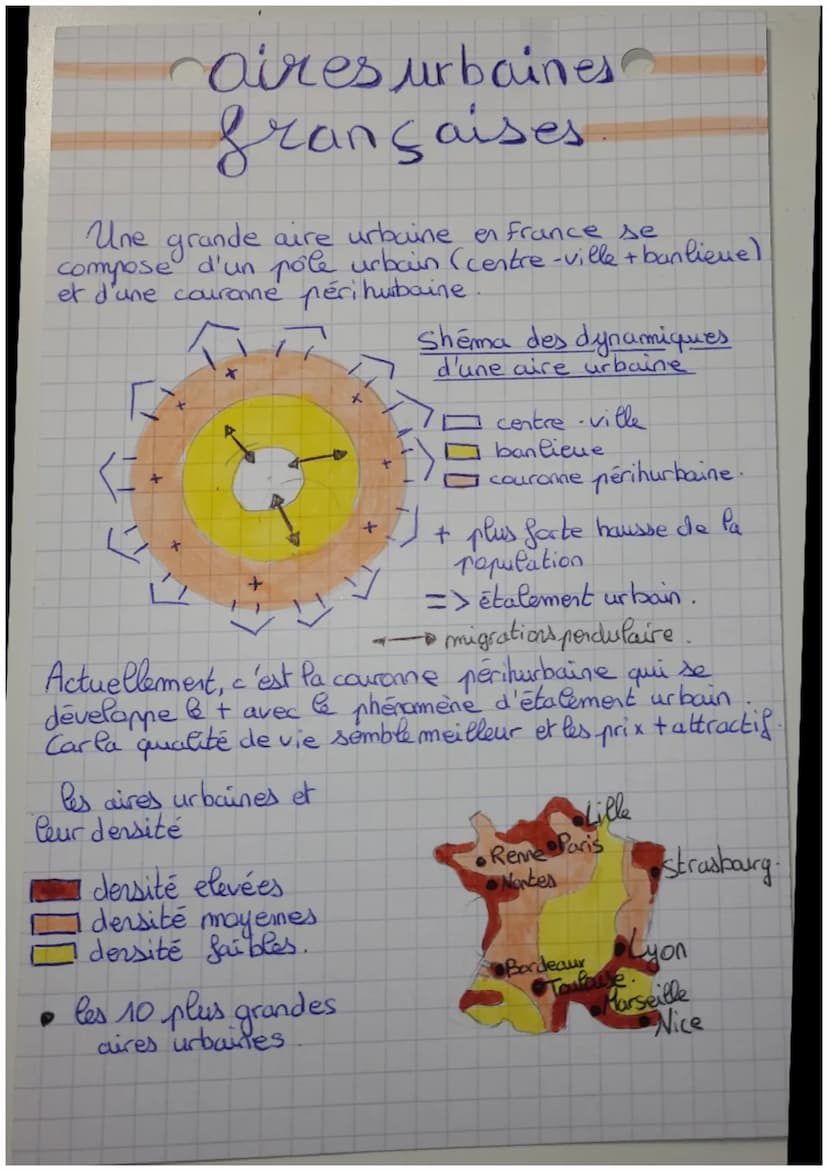 aires urbaines
françaises
Une grande aire urbaine en France se
compose d'un pôle urbain (centre-ville + banlieue)
et d'une couronne périhurbaine.
Shéma des dynamiques
d'une aire urbaine
centre-ville
banlieue
couronne périhurbaine.
+ plus forte hausse de la
population
=> étalement urbain.
migrations pendulaire.
Actuellement, c'est la couronne périhurbaine qui se
développe le + avec le phénomène d'étalement urbain.
Car la qualité de vie semble meilleur et les prix + attractif.
les aires urbaines et
leur densité
densité elevées
densité moyennes
densité faibles.
• les 10 plus grandes
aires urbaines
Lille
Renne
Paris
Strasbourg
Nantes
Lyon
Bordeaux
Toulouse
Marseille
Nice